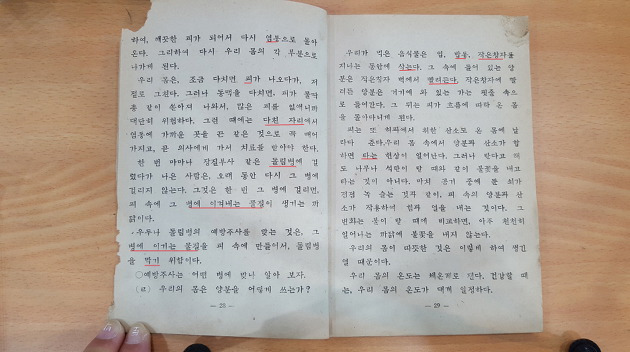 하여, 깨끗한 피가 되어서 다시 염통으로 돌아
온다. 그리하여 다시 우리 몸의 각 부분으로
나가게 된다.
우리 몸은, 조금 다치면 피가 나오다가, 저
절로 그친다. 그러나 동맥을 다치면, 피가 물딱
총 같이 쏟아져 나와서, 많은 피를 잃게 되며
대단히 위험하다. 그런 때에는 다친 자리에서
염통에 가까운 곳을 끈 같은 것으로 꼭 매어
가지고, 곧 의사에게 가서 치료를 받아야 한다.
한 번 마마나 장질부사 같은 돌림병에 걸
렸다가 나은 사람은, 오래 동안 다시 그 병에
걸리지 않는다. 그것은 한 번 그 병에 걸리면,
피 속에 그 병에 이겨내는 물질이 생기는 까
닭이다.
우두나 돌림병의 예방주사를 맞는 것은, 그
병에 이기는 물질을 피 속에 만들어서, 돌림병
을 막기 위함이다.
○예방주사는 어떤 병에 맞나 알아 보자.
(ㄹ) 우리의 몸은 양분을 어떻게 쓰는가?
— 28 —
우리가 먹은 음식물은 입, 밥통, 작은창자를
지나는 동안에 삭는다. 그 속에 들어 있는 양
분은 작은창자 벽에서 빨려든다. 작은창자에 빨
려든 양분은 거기에 와 있는 가는 핏줄 속으
로 들어간다. 그 뒤는 피가 흐름에 따라 온 몸
을 돌아다니게 된다.
피는 또 허파에서 취한 산소도 온 몸에 날
라다 준다. 우리 몸 속에서 양분과 산소가 합
하면 타는 현상이 일어난다. 그러나 탄다고 해
도 나무나 석탄이 탈 때와 같이 불꽃을 내고
타는 것이 아니다. 마치 공기 중에 둔 쇠가
점점 녹 스는 것과 같이, 피 속의 양분과 산
소가 작용하여 힘과 열을 내는 것이다. 그
변화는 불이 탈 때에 비교하면, 아주 천천히
일어나는 까닭에 불꽃을 내지 않는다.
우리의 몸이 따뜻한 것은 이렇게 하여 생긴
열 때문이다.
우리 몸의 온도는 체온계로 잰다. 건강할 때
는, 우리 몸의 온도가 대개 일정하다.
— 29 —